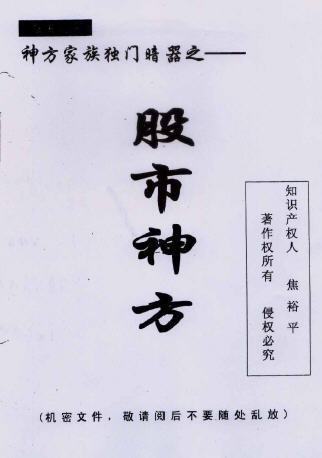 神方家族独门暗器之——
股市神方
知识产权人 焦裕平
著作权所有 侵权必究
(机密文件，敬请阅后不要随处乱放)